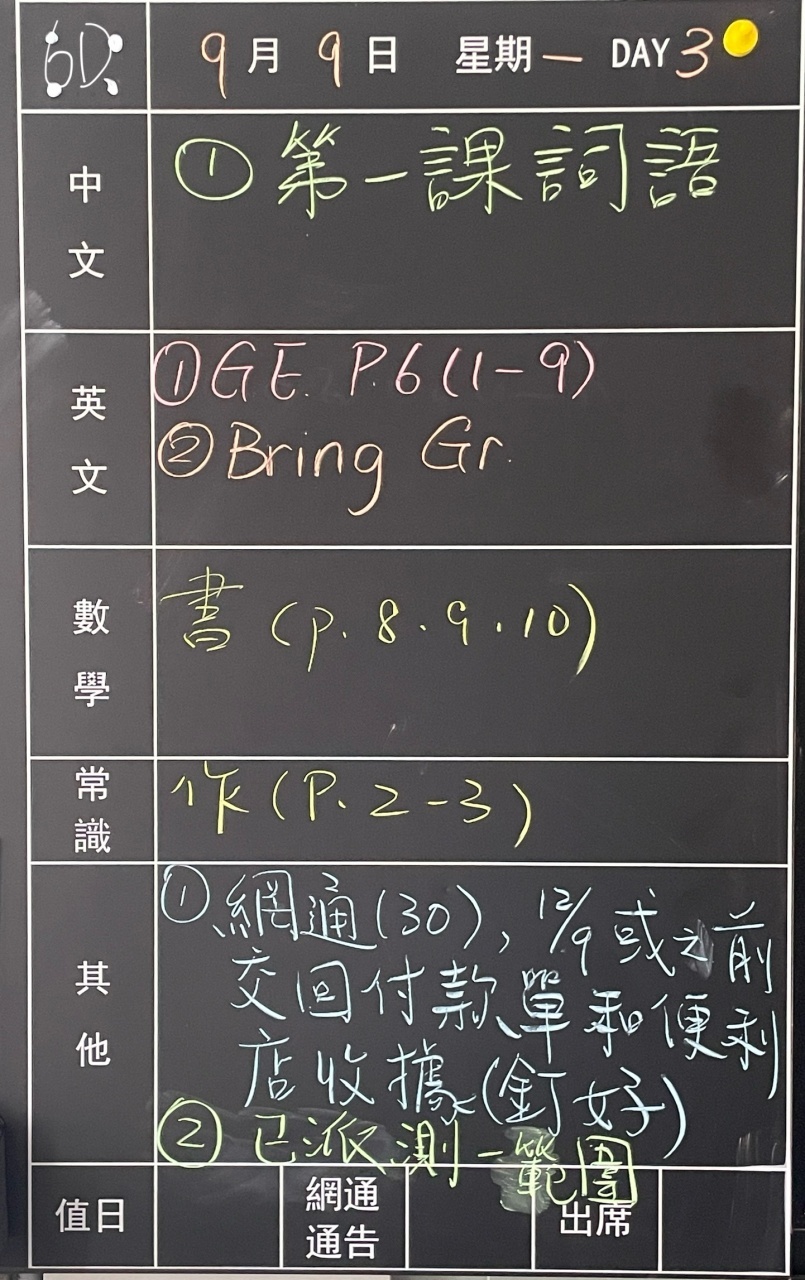 6D 9月9日 星期一 DAY 3
中文 ①第一課詞語
英文 ①GE P.6(1-9)
②Bring Gr.
數學 書(p.8.9.10)
常識 作(P.2-3)
其他 ①網通(30), 12/9或之前
交回付款單和便利
店收據(釘好)
②已派測一範圍
值日 網通通告 出席